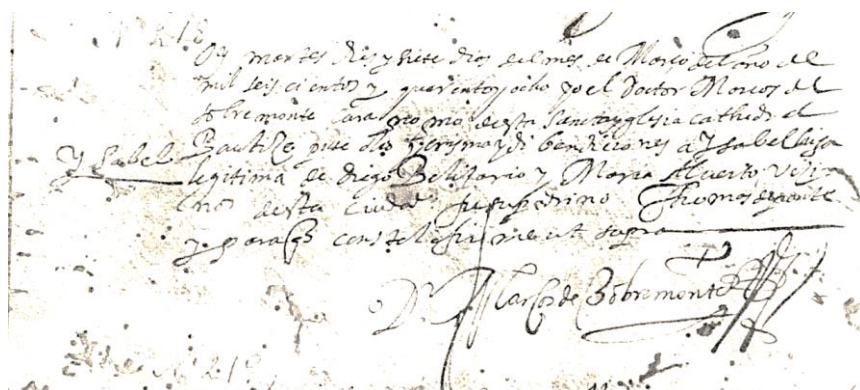 Nº 218
En martes diez y siete dias del mes de Março del año de
mil seiscientos y quarenta y ocho yo el Doctor Marcos de
Sobremonte cura desta santa yglesia cathedral
Ysabel
Bautize puse olio y crisma y di bendiciones a Ysabel hija
legitima de diego Belisario y Maria Alberto vezi
nos desta ciudad fue su padrino Thomas de ponte
y para q conste lo firme ut supra
Dr. Marcos de Sobremonte
Nº 219